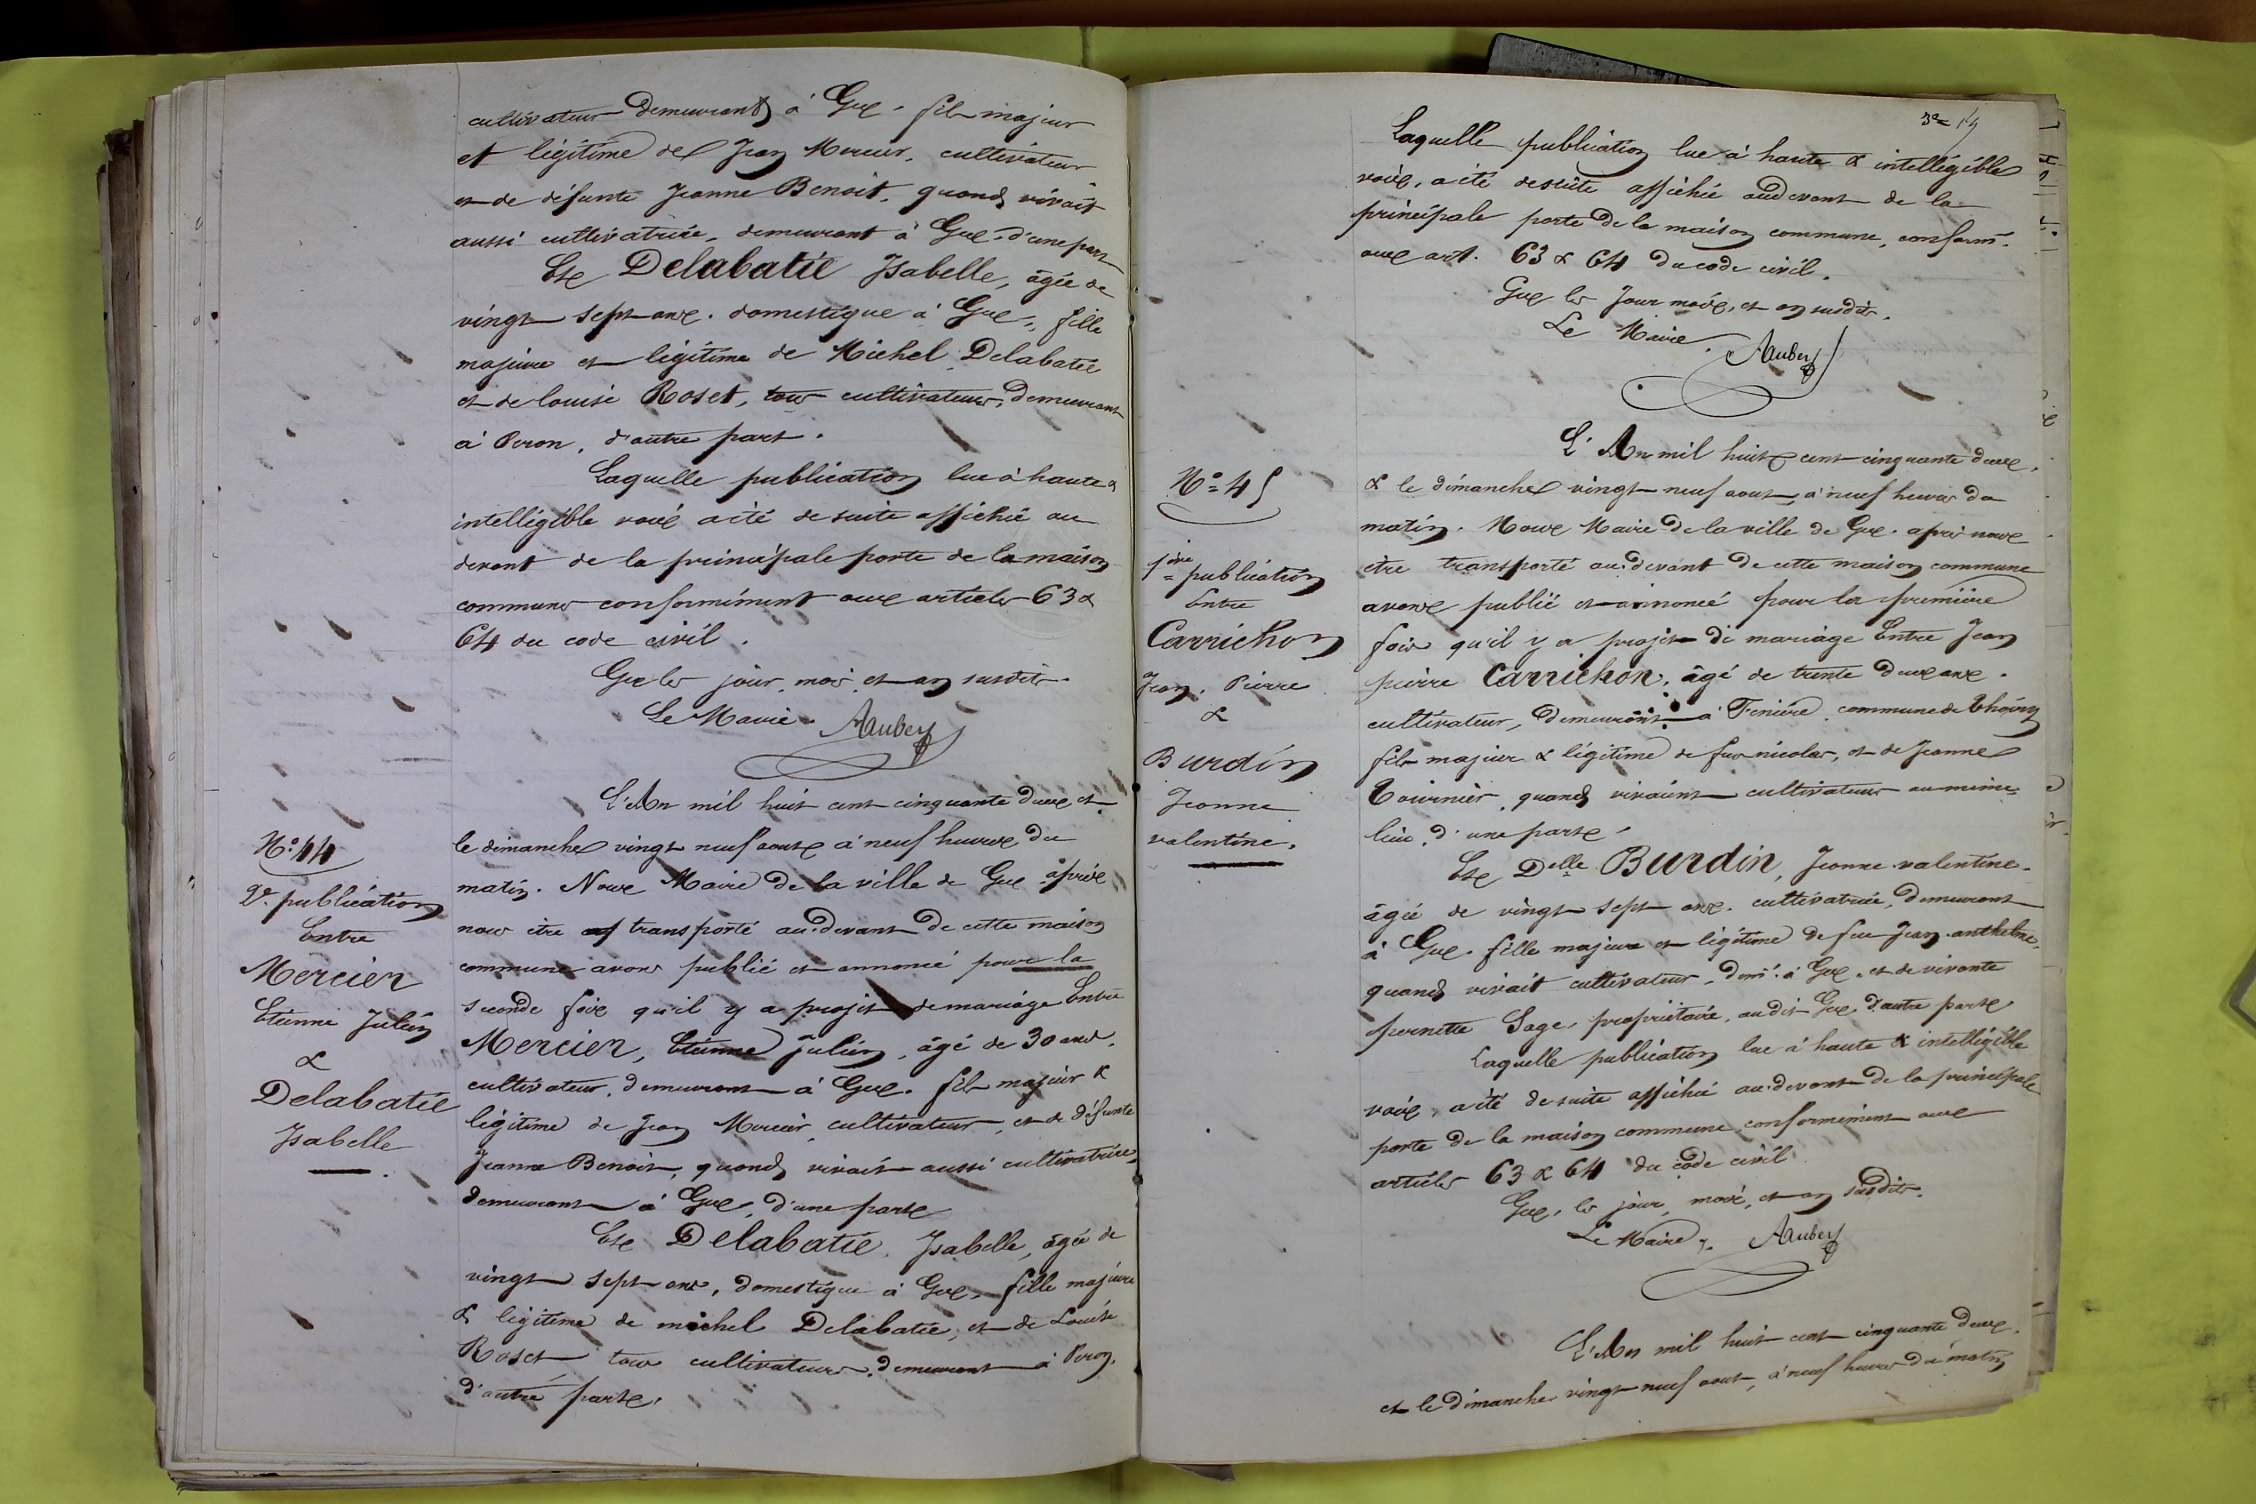 cultivateur demeurant à Gex. fils majeur
et légitime de Jean Mercier, cultivateur
et de défunte Jeanne Benoit, quand vivait
aussi cultivatrice, demeurant à Gex, d'une part
Et Delabatie Isabelle, âgée de
vingt sept ans. domestique à Gex, fille
majeure et légitime de Michel Delabatie
et de louise Roset, tous cultivateurs, demeurant
à Peron, d'autre part.
Laquelle publication lue à haute &
intelligible voix a été de suite affichée au
devant de la principale porte de la maison
commune conformément aux articles 63 &
64 du code civil.
Gex les jour, mois, et an susdits.
Le Maire. Aubery
N° 44
2e publication
Entre
Mercier
Etienne Julien
&
Delabatie
Isabelle
L'An mil huit cent cinquante deux et
le dimanche vingt neuf aout à neuf heures du
matin. Nous Maire de la ville de Gex après
nous être transporté au devant de cette maison
commune avons publié et annoncé pour la
seconde fois qu'il y a projet de mariage Entre
Mercier, Etienne Julien, âgé de 30 ans.
cultivateur, demeurant à Gex. fils majeur &
légitime de Jean Mercier, cultivateur, et de défunte
Jeanne Benoit, quand vivait aussi cultivatrice,
demeurant à Gex, d'une part
Et Delabatie, Isabelle, âgée de
vingt sept ans, domestique à Gex, fille majeure
& légitime de michel Delabatie, et de Louise
Roset tous cultivateurs, demeurant à Peron,
d'autre part.
3e 19
Laquelle publication lue à haute & intelligible
voix, a été desuite affichée audevant de la
principale porte de la maison commune, conform.
aux art. 63 & 64 du code civil.
Gex les Jour mois, et an susdits.
Le Maire. Aubery
N° 45
1ère publication
Entre
Carrichon
Jean, Pierre
&
Burdin
Jeanne
valentine.
L'An mil huit cent cinquante deux,
& le dimanche vingt neuf aout, à neuf heures du
matin. Nous Maire de la ville de Gex. après nous
être transporté au devant de cette maison commune
avons publié et annoncé pour la première
fois qu'il y a projet de mariage Entre Jean
pierre Carrichon, âgé de trente deux ans.
cultivateur, demeurant à Fenière commune de Thoiry
fils majeur & légitime de feu nicolas, et de Jeanne
Tournier, quand vivaient cultivateurs au même
lieu, d'une part.
Et Delle Burdin, Jeanne valentine.
âgée de vingt sept ans. cultivatrice, demeurant
à Gex. fille majeure et légitime de feu Jean anthelme,
quand vivait cultivateur, demt à Gex, et de vivante
pernette Sage, propriétaire, audit Gex, d'autre part
Laquelle publication lue à haute & intelligible
voix, a été de suite affichée au devant de la principale
porte de la maison commune conformément aux
articles 63 & 64 du code civil
Gex, les jour, mois, et an susdits.
Le Maire. Aubery
L'An mil huit cent cinquante deux.
et le dimanche vingt neuf aout, à neuf heures du matin